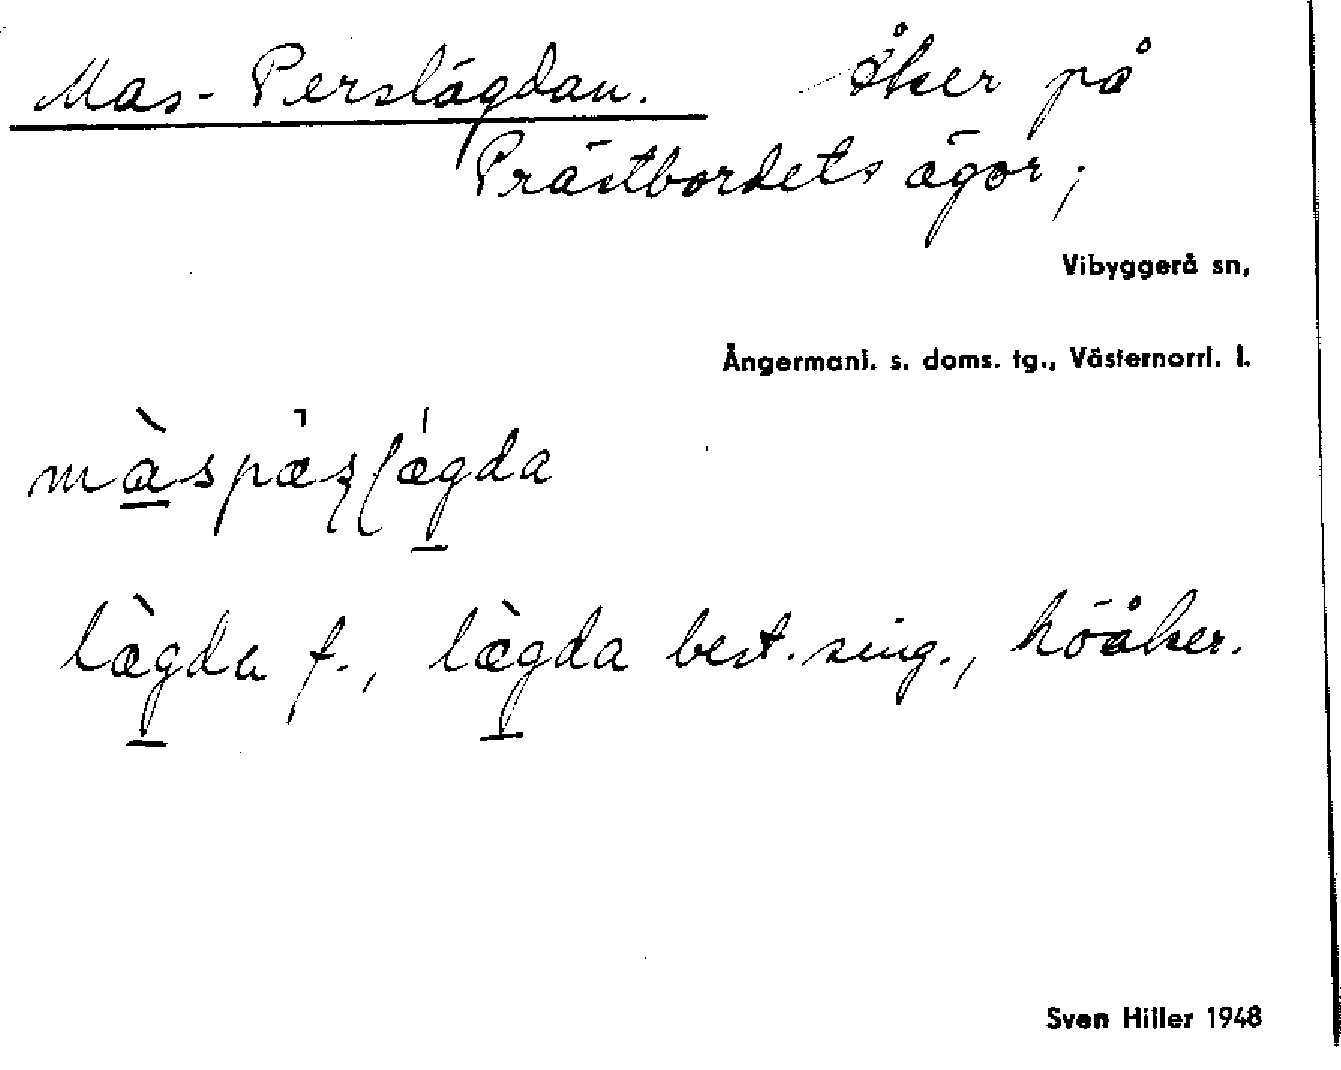 Mas-Perslägdan. Åker på
Prästbordets ägor;
Vibyggerå sn,
Ångermanl. s. doms. tg., Västernorrl. l.
màspæʂlægda
lægda f., lægda best. sing., höåker.
Sven Hiller 1948